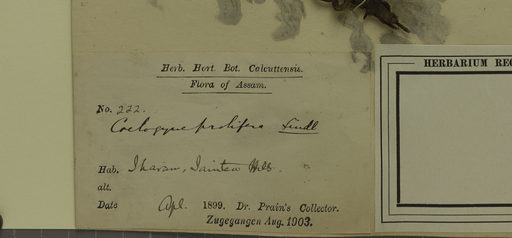 Herb. Hort. Bot. Calcuttensis.
Flora of Assam.
No. 222.
Coelogyne prolifera Lindl
Hab. Jharain, Jaintea Hills.
alt.
Date Apl. 1899. Dr. Prain's Collector.
Zugegangen Aug. 1903.
HERBARIUM REG